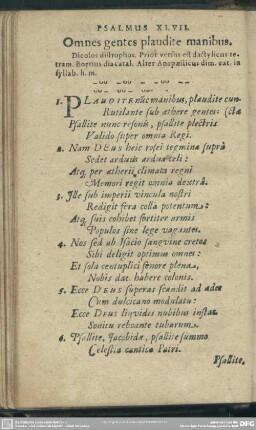 PSALMUS XLVII.
Omnes gentes plaudite manibus.
Dicolos distrophos. Prior versus est dactylicus te-
tram. Boetius dia catal. Alter Anapæsticus dim. cat. in
syllab. h. m.
1. PLAUDITE nūc manibus, plaudite cun-
Rutilante sub æthere gentes: (ctæ
Psallite nunc resonis, psallite plectris
Valido super omnia Regi.
2. Nam DEUS heic rosei tegmina suprà
Sedet arduus ardua cœli:
Atq; per ætherii climata regni
Memori regit omnia dextrâ.
3. Ille sub imperii vincula nostri
Redigit fera colla potentum:
Atq; suis cohibet fortiter armis
Populos sine lege vagantes.
4. Nos sed ab Isacio sangvine cretos
Sibi deligit optimus omnes:
Et sola centuplici fenore plena,
Nobis dat habere colonis.
5. Ecce DEUS superas scandit ad ædes
Cum dulcicano modulatu:
Ecce DEUS liqvidis nubibus instat
Sonitu reboante tubarum.
6. Psallite, Jacobidæ, psallite summo
Celestia cantica Patri.
Psallite.